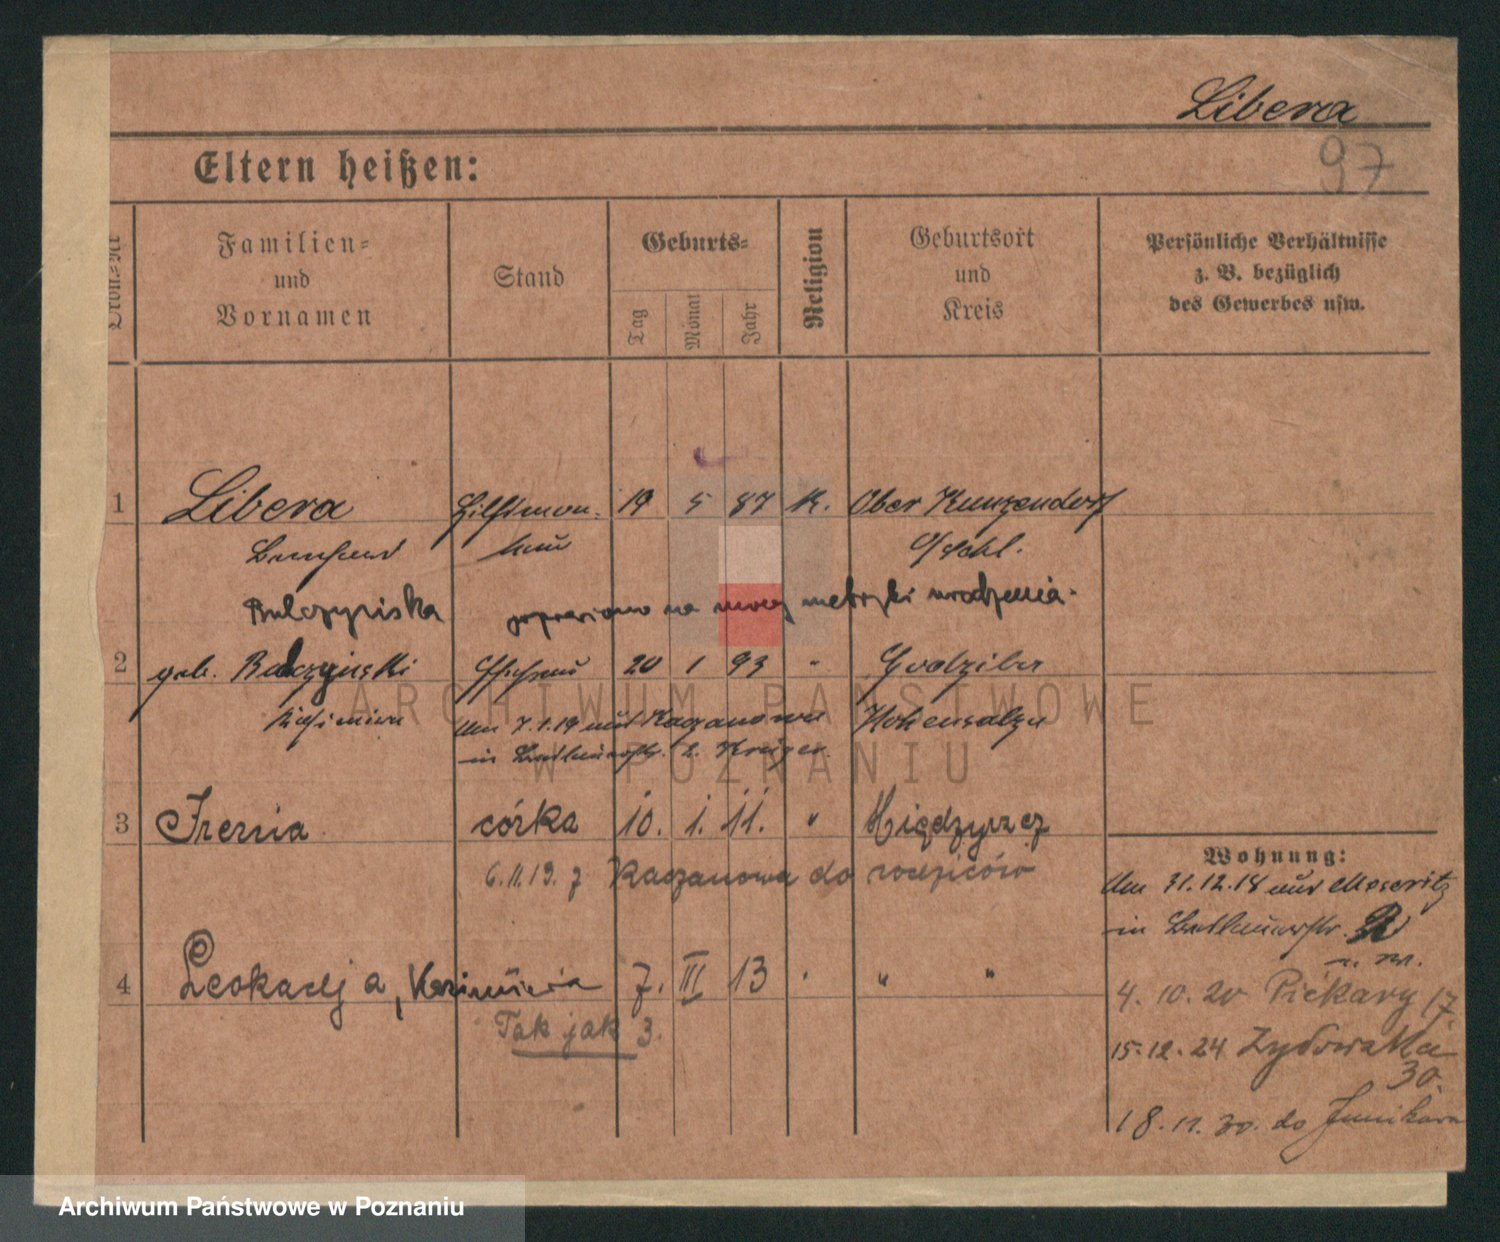 Libera
97
Eltern heißen:
Ordn.-Nr
Familien-
und
Vornamen
Stand
Geburts-
Tag
Monat
Jahr
Religion
Geburtsort
und
Kreis
Persönliche Verhältnisse
z. B. bezüglich
des Gewerbes usw.
1 Libera 19 5 87 K. Ober Kunzendorf
O/Schl.
Bulczyńska poprawiono na mocy metryki urodzenia.
2 geb. Bulczynski Ehefrau 20 1 93 " Godziba
Kasimira Am 7.1.19 aus Kaczanowo Hohensalza
in b. Krüger.
3 Irena córka 10. 1. 11. " Międzyrzecz
6.11.19. z Kaczanowa do rodziców
Wohnung:
Am 31.12.18 aus Meseritz
in
4 Leokadja, Kazimiera 7. III 13 " " "
Tak jak 3.
4. 10. 20 Piekary 17
15.12.24 Żydowska
30.
18.11.30. do Junikowa
Archiwum Państwowe w Poznaniu
ARCHIWUM PAŃSTWOWE
W POZNANIU